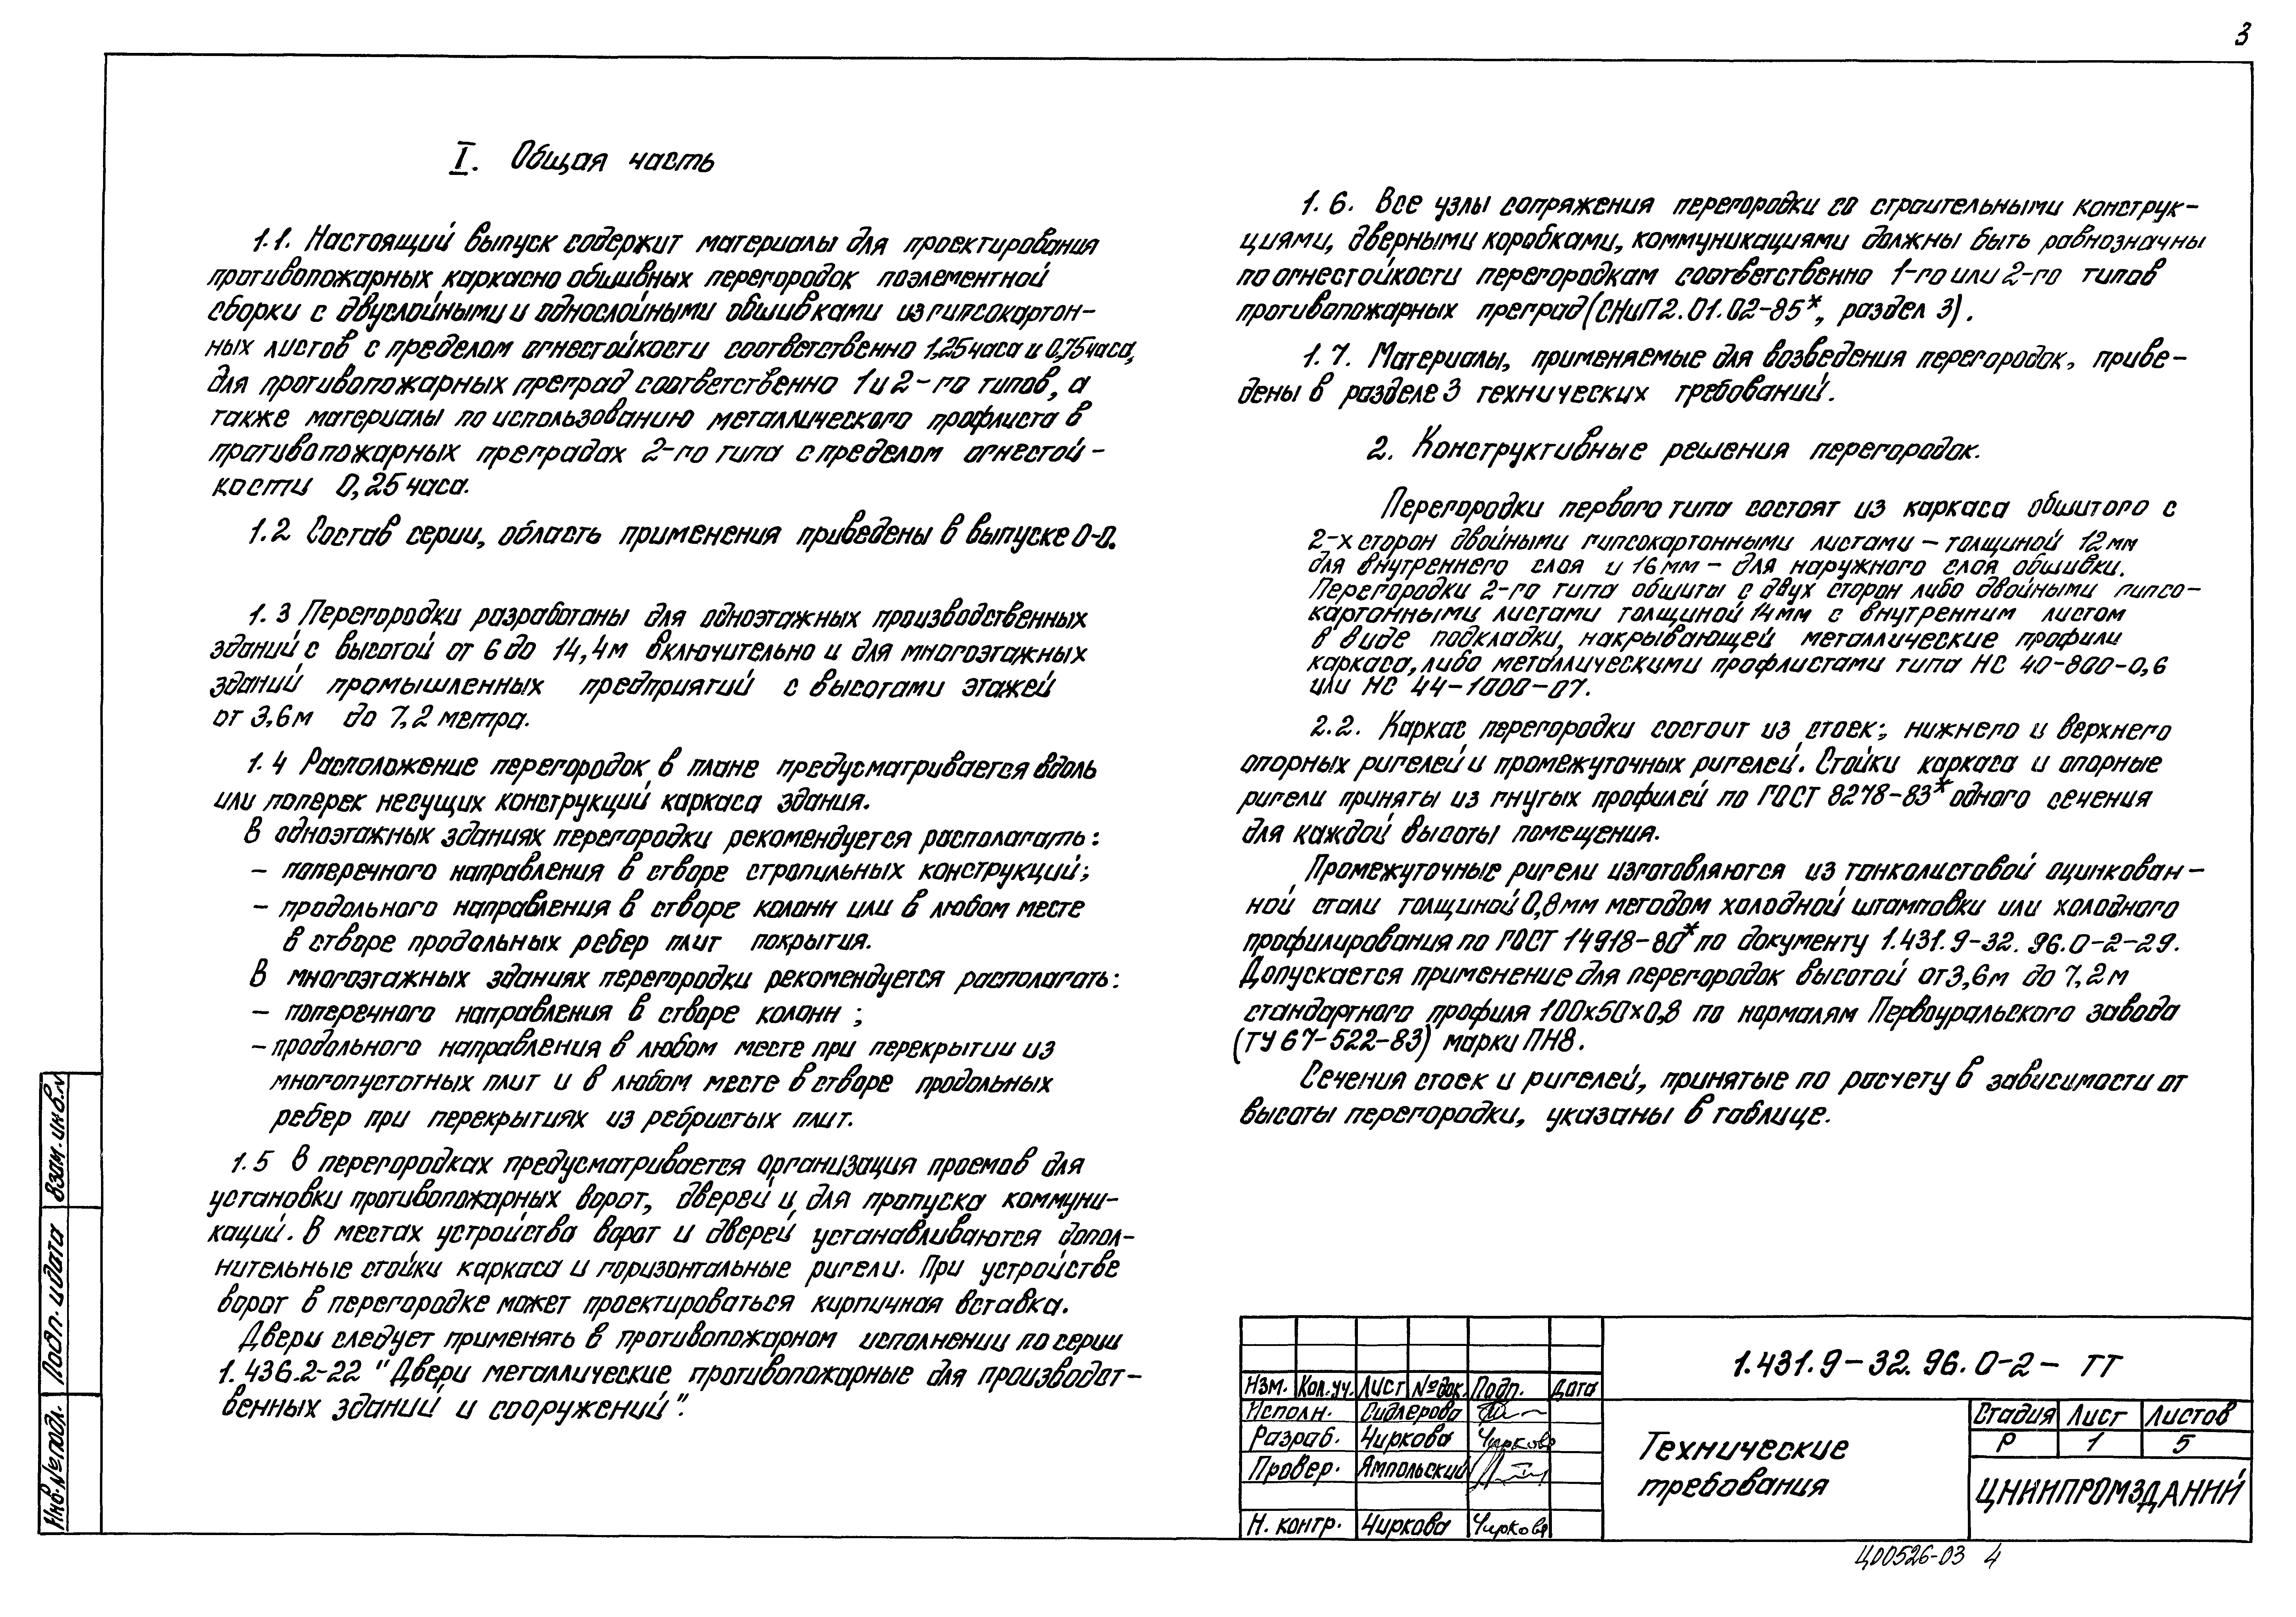 3
I. Общая часть
1.1. Настоящий выпуск содержит материалы для проектирования
противопожарных каркасно обшивных перегородок поэлементной
сборки с двуслойными и однослойными обшивками из гипсокартон-
ных листов с пределом огнестойкости соответственно 1,25 часа и 0,75 часа,
для противопожарных преград соответственно 1 и 2-го типов, а
также материалы по использованию металлического профлиста в
противопожарных преградах 2-го типа с пределом огнестой-
кости 0,25 часа.
1.2 Состав серии, область применения приведены в выпуске 0-0.
1.3 Перегородки разработаны для одноэтажных производственных
зданий с высотой от 6 до 14,4м включительно и для многоэтажных
зданий промышленных предприятий с высотами этажей
от 3,6м до 7,2 метра.
1.4 Расположение перегородок в плане предусматривается вдоль
или поперек несущих конструкций каркаса здания.
В одноэтажных зданиях перегородки рекомендуется располагать:
- поперечного направления в створе стропильных конструкций;
- продольного направления в створе колонн или в любом месте
в створе продольных ребер плит покрытия.
В многоэтажных зданиях перегородки рекомендуется располагать:
- поперечного направления в створе колонн;
- продольного направления в любом месте при перекрытии из
многопустотных плит и в любом месте в створе продольных
ребер при перекрытиях из ребристых плит.
1.5 В перегородках предусматривается организация проемов для
установки противопожарных ворот, дверей и для пропуска коммуни-
каций. В местах устройства ворот и дверей устанавливаются допол-
нительные стойки каркаса и горизонтальные ригели. При устройстве
ворот в перегородке может проектироваться кирпичная вставка.
Двери следует применять в противопожарном исполнении по серии
1.436.2-22 "Двери металлические противопожарные для производст-
венных зданий и сооружений".
1.6. Все узлы сопряжения перегородки со строительными конструк-
циями, дверными коробками, коммуникациями должны быть равнозначны
по огнестойкости перегородкам соответственно 1-го или 2-го типов
противопожарных преград (СНиП 2.01.02-85*, раздел 3).
1.7. Материалы, применяемые для возведения перегородок, приве-
дены в разделе 3 технических требований.
2. Конструктивные решения перегородок.
Перегородки первого типа состоят из каркаса обшитого с
2-х сторон двойными гипсокартонными листами - толщиной 12мм
для внутреннего слоя и 16мм - для наружного слоя обшивки.
Перегородки 2-го типа обшиты с двух сторон либо двойными гипсо-
картонными листами толщиной 14мм с внутренним листом
в виде подкладки, накрывающей металлические профили
каркаса, либо металлическими профлистами типа НС 40-800-0,6
или НС 44-1000-07.
2.2. Каркас перегородки состоит из стоек; нижнего и верхнего
опорных ригелей и промежуточных ригелей. Стойки каркаса и опорные
ригели приняты из гнутых профилей по ГОСТ 8278-83* одного сечения
для каждой высоты помещения.
Промежуточные ригели изготовляются из тонколистовой оцинкован-
ной стали толщиной 0,8мм методом холодной штамповки или холодного
профилирования по ГОСТ 14918-80* по документу 1.431.9-32.96.0-2-29.
Допускается применение для перегородок высотой от 3,6м до 7,2м
стандартного профиля 100х50х0,8 по нормалям Первоуральского завода
(ТУ 67-522-83) марки ПН8.
Сечения стоек и ригелей, принятые по расчету в зависимости от
высоты перегородки, указаны в таблице.
Взам. инв.№
Подп. и дата
Инв.№ подл.
1.431.9-32.96.0-2-ТТ
Изм. Кол.уч. Лист №док. Подп. Дата
Исполн. Сидлерова
Разраб. Чиркова Чиркова
Провер. Ямпольский
Н. контр. Чиркова Чиркова
Технические
требования
Стадия Лист Листов
Р 1 5
ЦНИИПРОМЗДАНИЙ
Ц00526-03 4